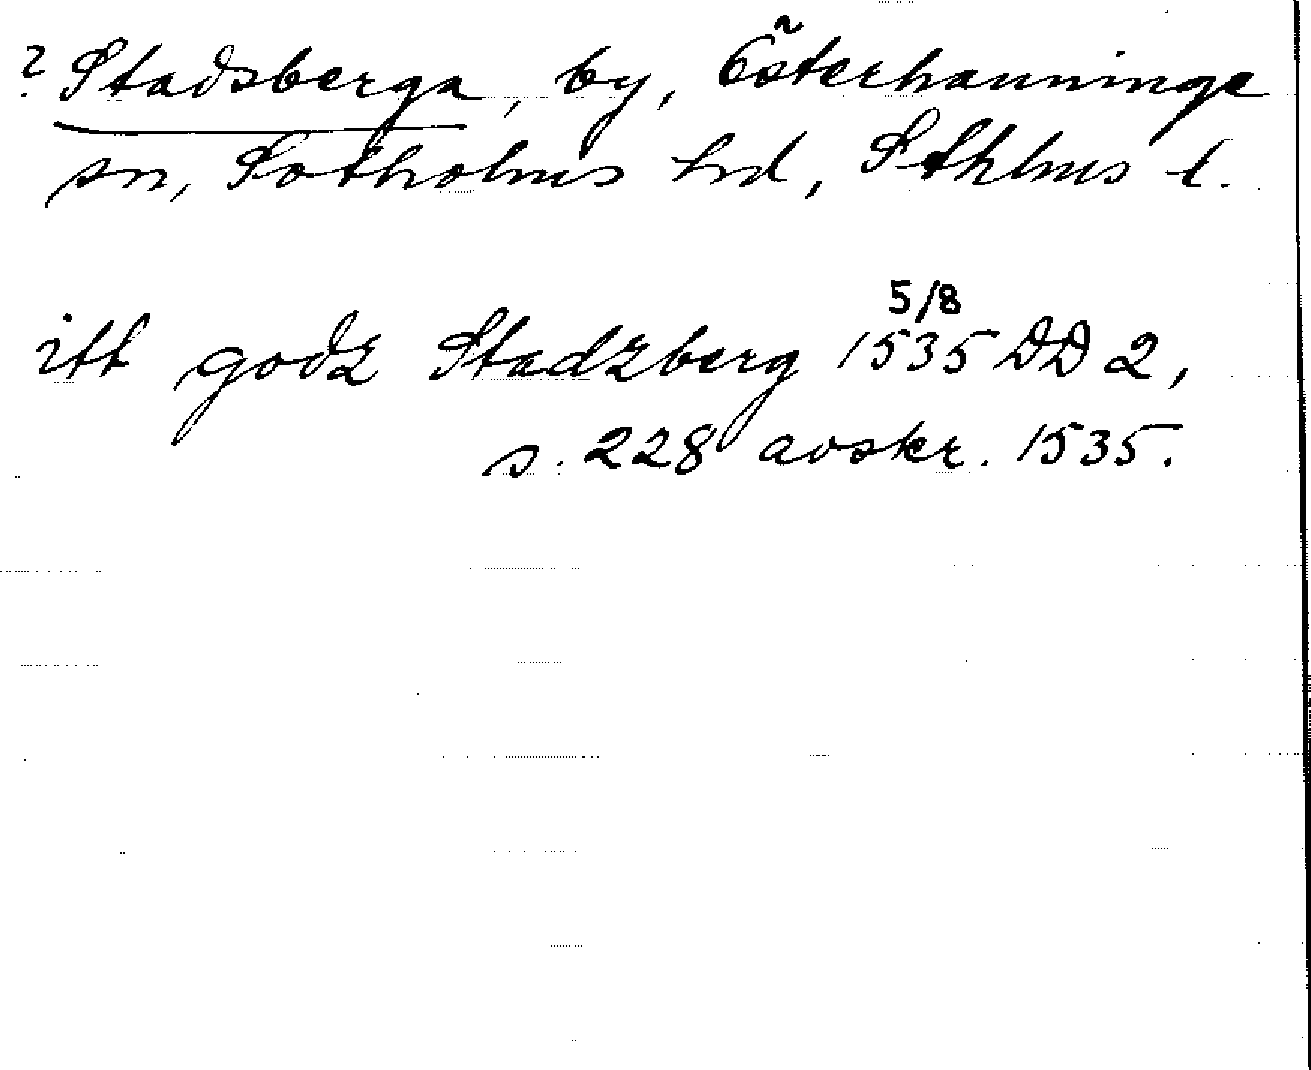 ? Stadsberga, by, Österhanninge
sn, Sotholms hd, Sthlms l.
itt godz Stadzberg 5/8 1535 DD 2,
s. 228 avskr. 1535.